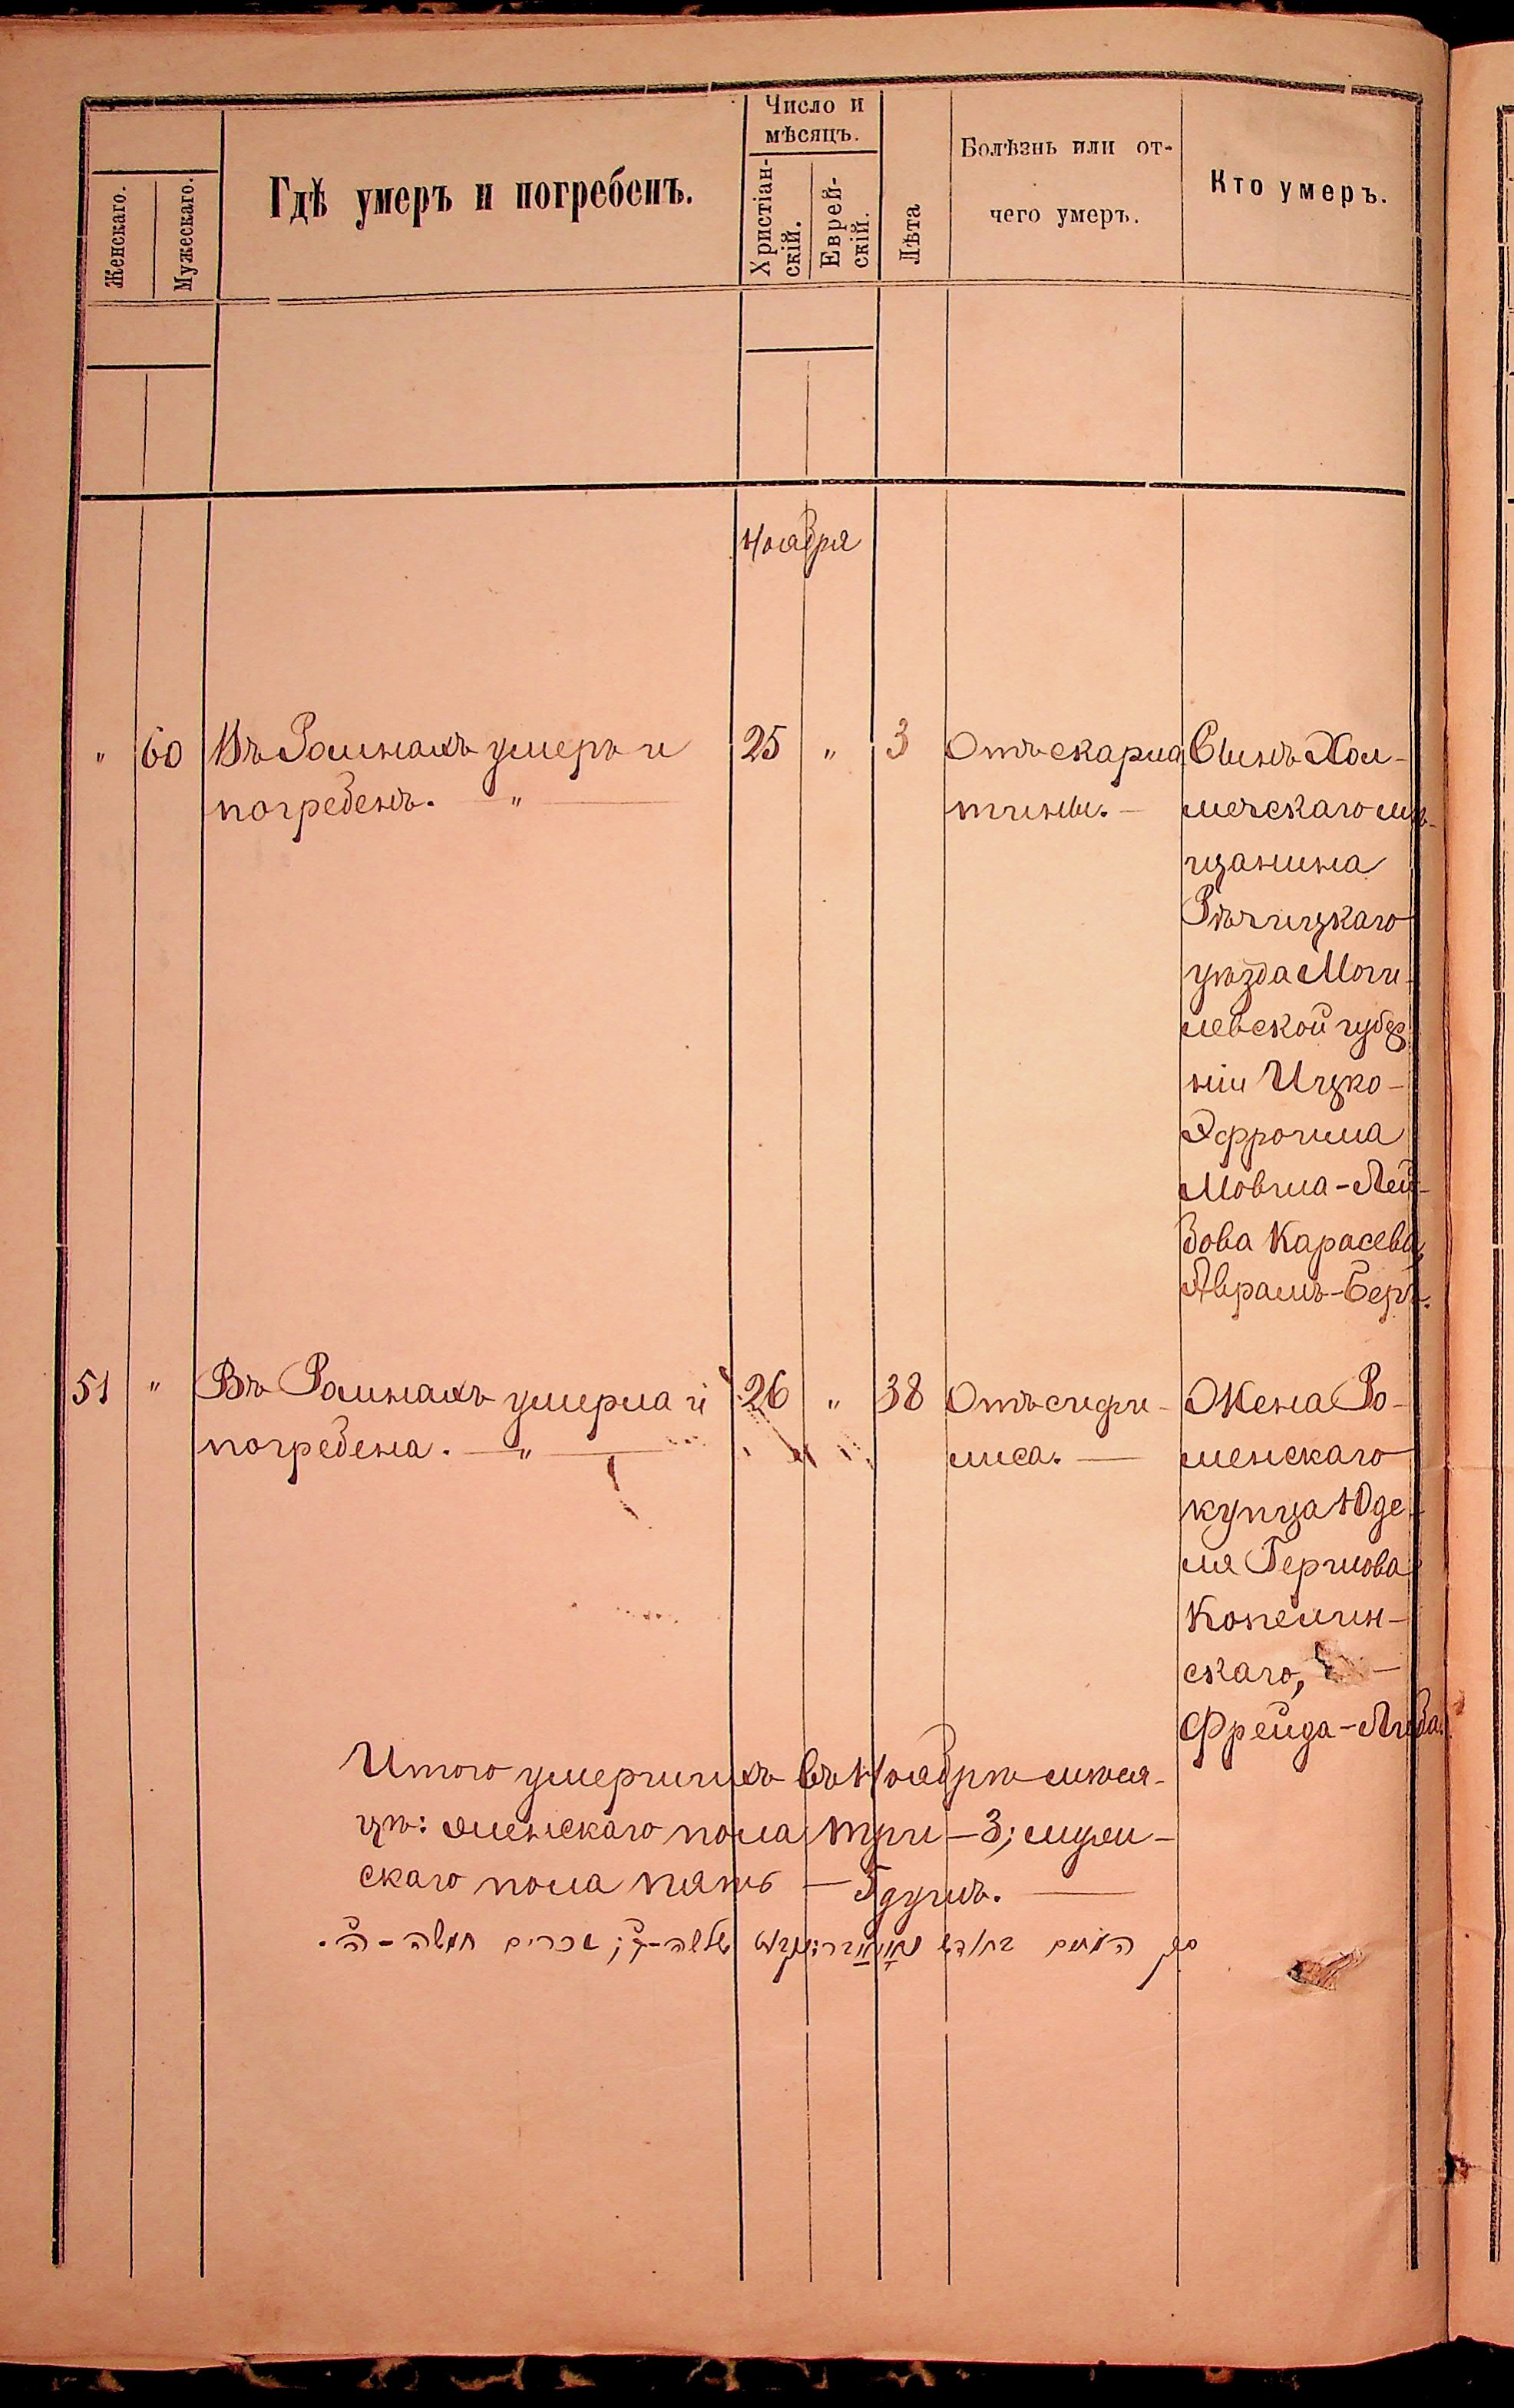 Женскаго.
Мужескаго.
Гдѣ умеръ и погребенъ.
Число и
мѣсяцъ.
Христіан-
скій.
Еврей-
скій.
Лѣта
Болѣзнь или от-
чего умеръ.
Кто умеръ.
Ноября
" 60 Въ Ромнахъ умеръ и 25 " 3 Отъ скарла Сынъ Хол-
погребенъ. — " — тины. — мечскаго мѣ-
щанина
Рѣчицкаго
уѣзда Моги-
левской губер
ніи Ицко-
Эфроима
Мовша-Лей-
бова Карасева,
Аврамъ-Беръ.
51 " Въ Ромнахъ умерла и 26 " 38 Отъ сифи- Жена Ро-
погребена. — " — лиса. — менскаго
купца Юде-
ля Гершова
Копелин-
скаго,
Фрейда-Либа.
Итого умершихъ въ Ноябрѣ мѣся-
цѣ: женскаго пола три — 3; муже-
скаго пола пять — 5 душъ. —
שלשה - ג; זכרים חמשה - ה.